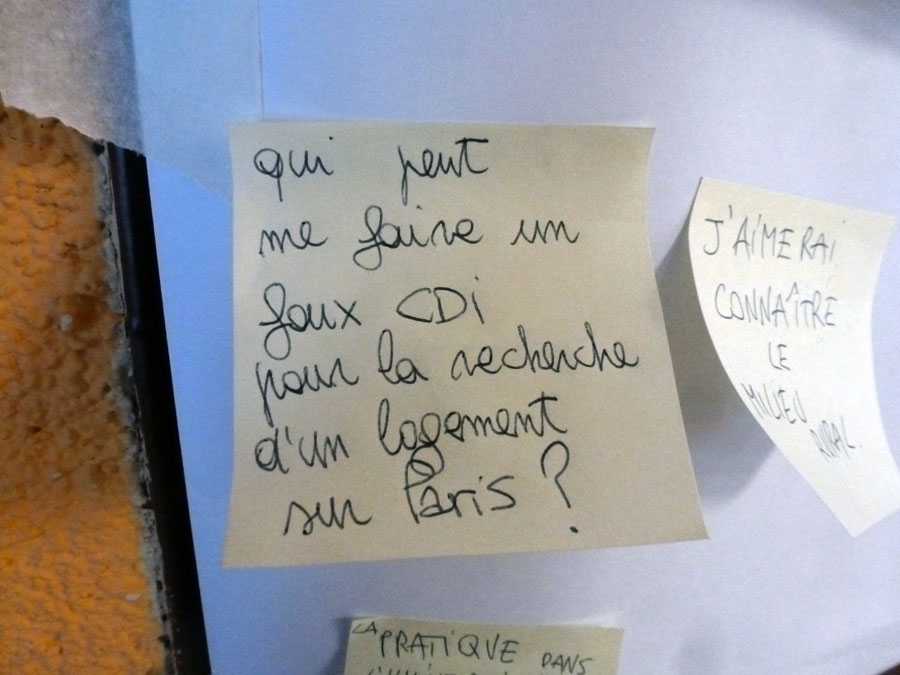 qui peut
me faire un
faux CDi
pour la recherche
d'un logement
sur Paris ?
J'AiMERAi
CONNAÎTRE
LE
MILIEU
RURAL.
LA PRATiQUE DANS